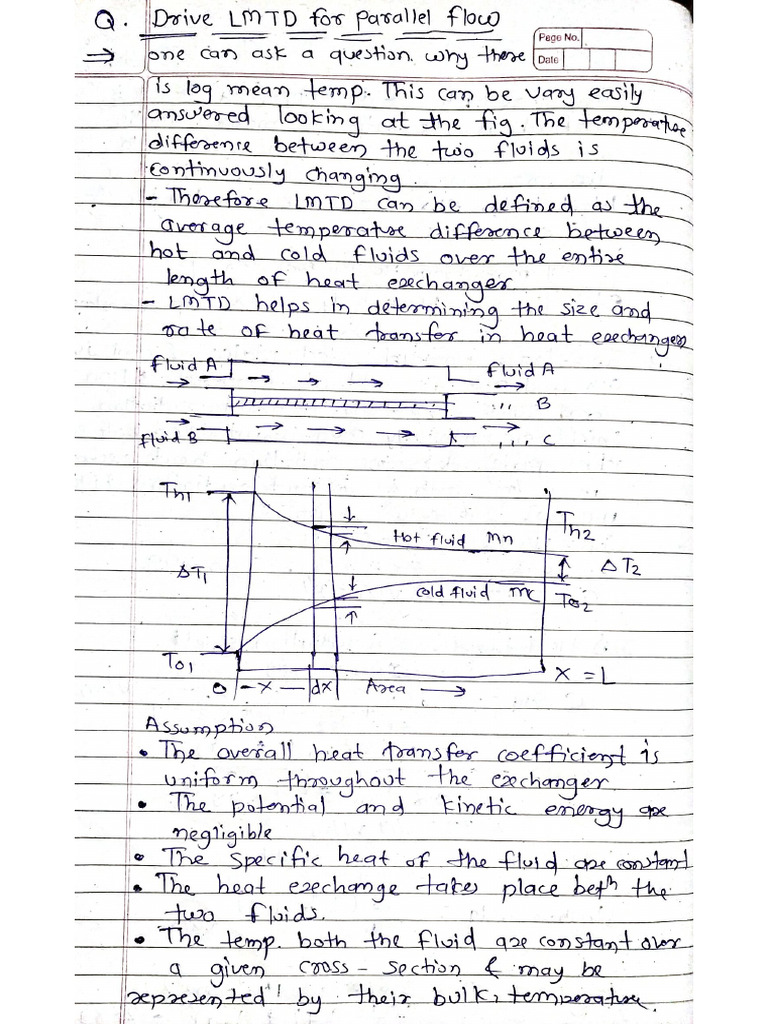 Q. Drive LMTD for parallel flow
Page No.
Date
⇒ one can ask a question why there
is log mean temp. This can be vary easily
answered looking at the fig. The temperature
difference between the two fluids is
continuously changing.
- Therefore LMTD can be defined as the
average temperature difference between
hot and cold fluids over the entire
length of heat exchanger
- LMTD helps in determining the size and
rate of heat transfer in heat exchanger
fluid A → → → → fluid A →
B
fluid B → → → → → C
Th1
Th2
Hot fluid Mn
ΔT1
ΔT2
cold fluid mc
Tc2
To1
x = L
0 - x - dx Area →
Assumption
• The overall heat transfer coefficient is
uniform throughout the exchanger
• The potential and kinetic energy are
negligible
• The specific heat of the fluid are constant
• The heat exchange takes place betn the
two fluids.
• The temp. both the fluid are constant over
a given cross-section & may be
represented by their bulk, temperature.